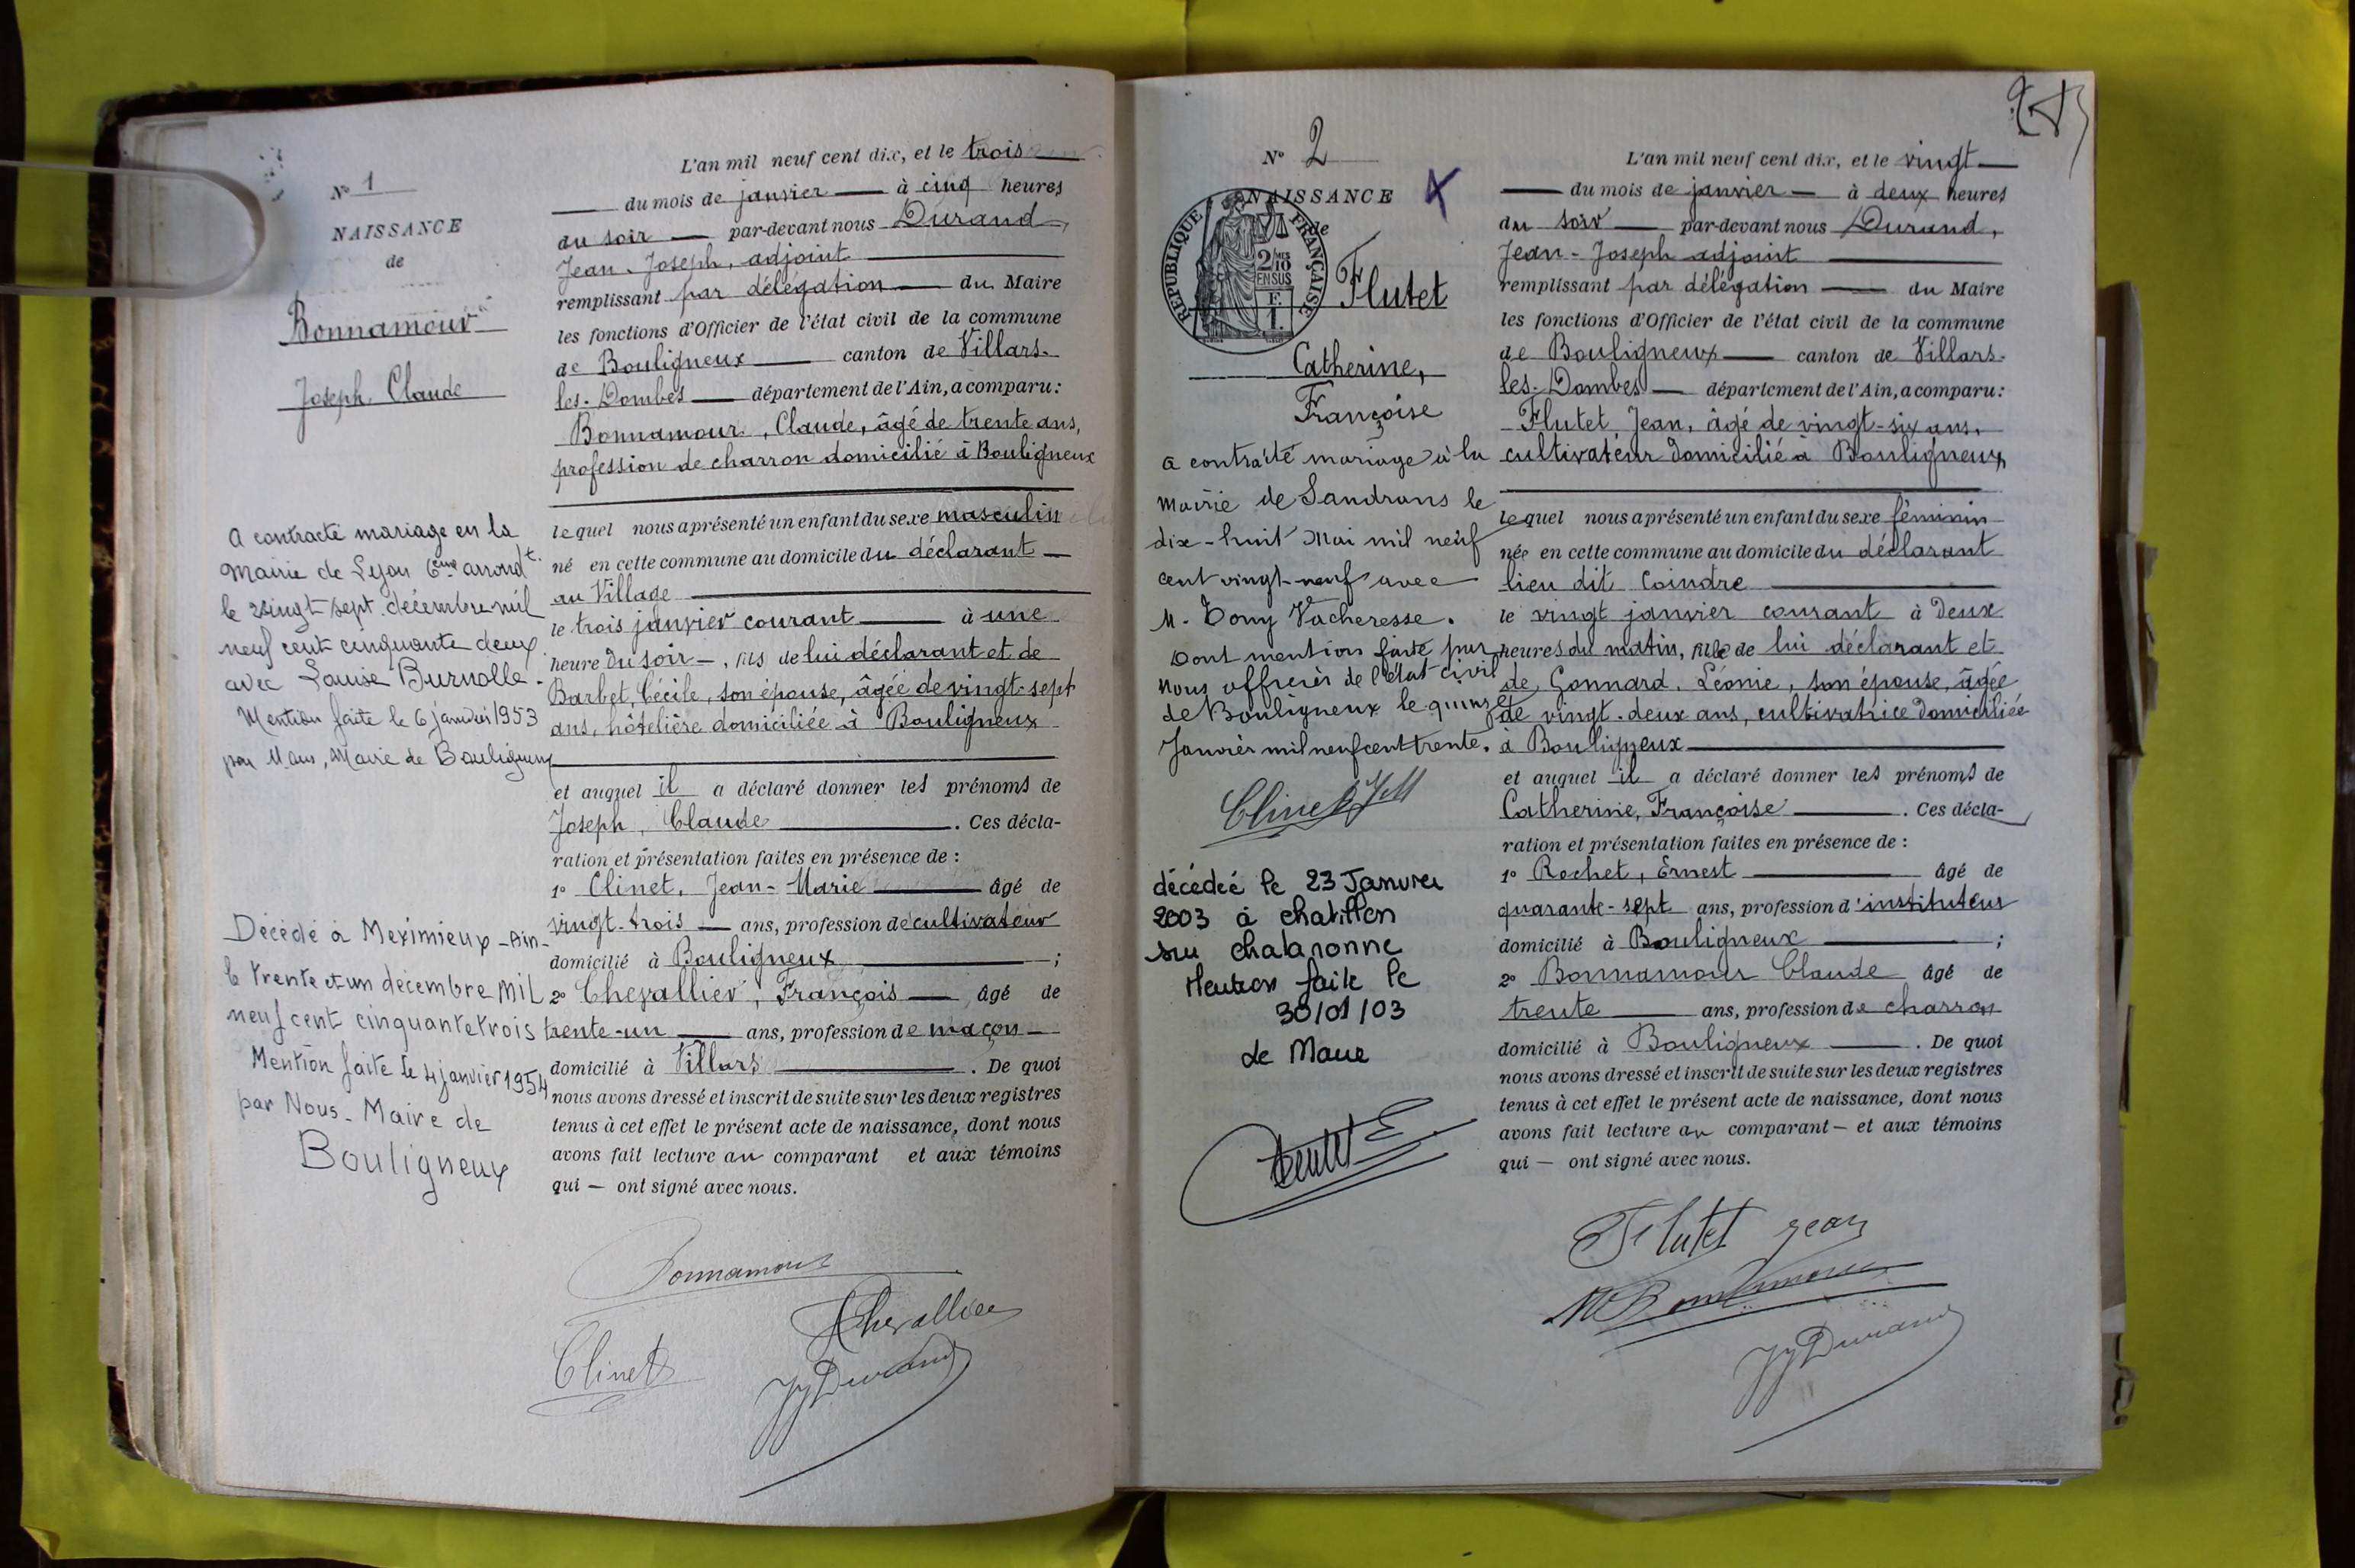 N° 1
NAISSANCE
de
Bonnamour
Joseph Claude
A contracté mariage en la
Mairie de Lyon 6ème arrondt.
le vingt sept décembre mil
neuf cent cinquante deux
avec Louise Burnolle.
Mention faite le 6 janvier 1953
par Nous, Maire de Bouligneux
Décédé à Meximieux - Ain -
le trente et un décembre mil
neuf cent cinquante trois
Mention faite le 4 janvier 1954
par Nous - Maire de
Bouligneux
L'an mil neuf cent dix, et le trois
du mois de janvier à cinq heures
du soir par-devant nous Durand,
Jean-Joseph, adjoint
remplissant par délégation du Maire
les fonctions d'Officier de l'état civil de la commune
de Bouligneux canton de Villars-
les-Dombes département de l'Ain, a comparu :
Bonnamour, Claude, âgé de trente ans,
profession de charron domicilié à Bouligneux
lequel nous a présenté un enfant du sexe masculin
né en cette commune au domicile du déclarant
au Village
le trois janvier courant à une
heure du soir, fils de lui déclarant et de
Barbet, Cécile, son épouse, âgée de vingt-sept
ans, hôtelière domiciliée à Bouligneux
et auquel il a déclaré donner les prénoms de
Joseph, Claude. Ces décla-
ration et présentation faites en présence de :
1° Clinet, Jean-Marie âgé de
vingt-trois ans, profession de cultivateur
domicilié à Bouligneux ;
2° Chevallier, François âgé de
trente-un ans, profession de maçon
domicilié à Villars. De quoi
nous avons dressé et inscrit de suite sur les deux registres
tenus à cet effet le présent acte de naissance, dont nous
avons fait lecture au comparant et aux témoins
qui — ont signé avec nous.
Bonnamour
Chevallier
Clinet
JJ Durand
N° 2
NAISSANCE
de
RÉPUBLIQUE FRANÇAISE
2/10 MES
EN SUS
F.
1.
Flutet
Catherine,
Françoise
a contracté mariage à la
mairie de Sandrans le
dix-huit Mai mil neuf
cent vingt-neuf avec
M. Tony Vacheresse.
Dont mention faite par
nous officier de l'état civil
de Bouligneux le quinze
Janvier mil neuf cent trente.
Clinet
décédée le 23 Janvier
2003 à chatillon
sur chalaronne
Mention faite le
30/01/03
de Maire
L'an mil neuf cent dix, et le vingt
du mois de janvier à deux heures
du soir par-devant nous Durand,
Jean-Joseph adjoint
remplissant par délégation du Maire
les fonctions d'Officier de l'état civil de la commune
de Bouligneux canton de Villars-
les-Dombes département de l'Ain, a comparu :
Flutet, Jean, âgé de vingt-six ans,
cultivateur domicilié à Bouligneux
lequel nous a présenté un enfant du sexe féminin
née en cette commune au domicile du déclarant
lieu dit Coindre
le vingt janvier courant à deux
heures du matin, fille de lui déclarant et
de Gonnard, Léonie, son épouse, âgée
de vingt-deux ans, cultivatrice domiciliée
à Bouligneux
et auquel il a déclaré donner les prénoms de
Catherine, Françoise. Ces décla-
ration et présentation faites en présence de :
1° Rochet, Ernest âgé de
quarante-sept ans, profession d'instituteur
domicilié à Bouligneux ;
2° Bonnamour Claude âgé de
trente ans, profession de charron
domicilié à Bouligneux. De quoi
nous avons dressé et inscrit de suite sur les deux registres
tenus à cet effet le présent acte de naissance, dont nous
avons fait lecture au comparant — et aux témoins
qui — ont signé avec nous.
Flutet jean
Bonnamour
JJ Durand